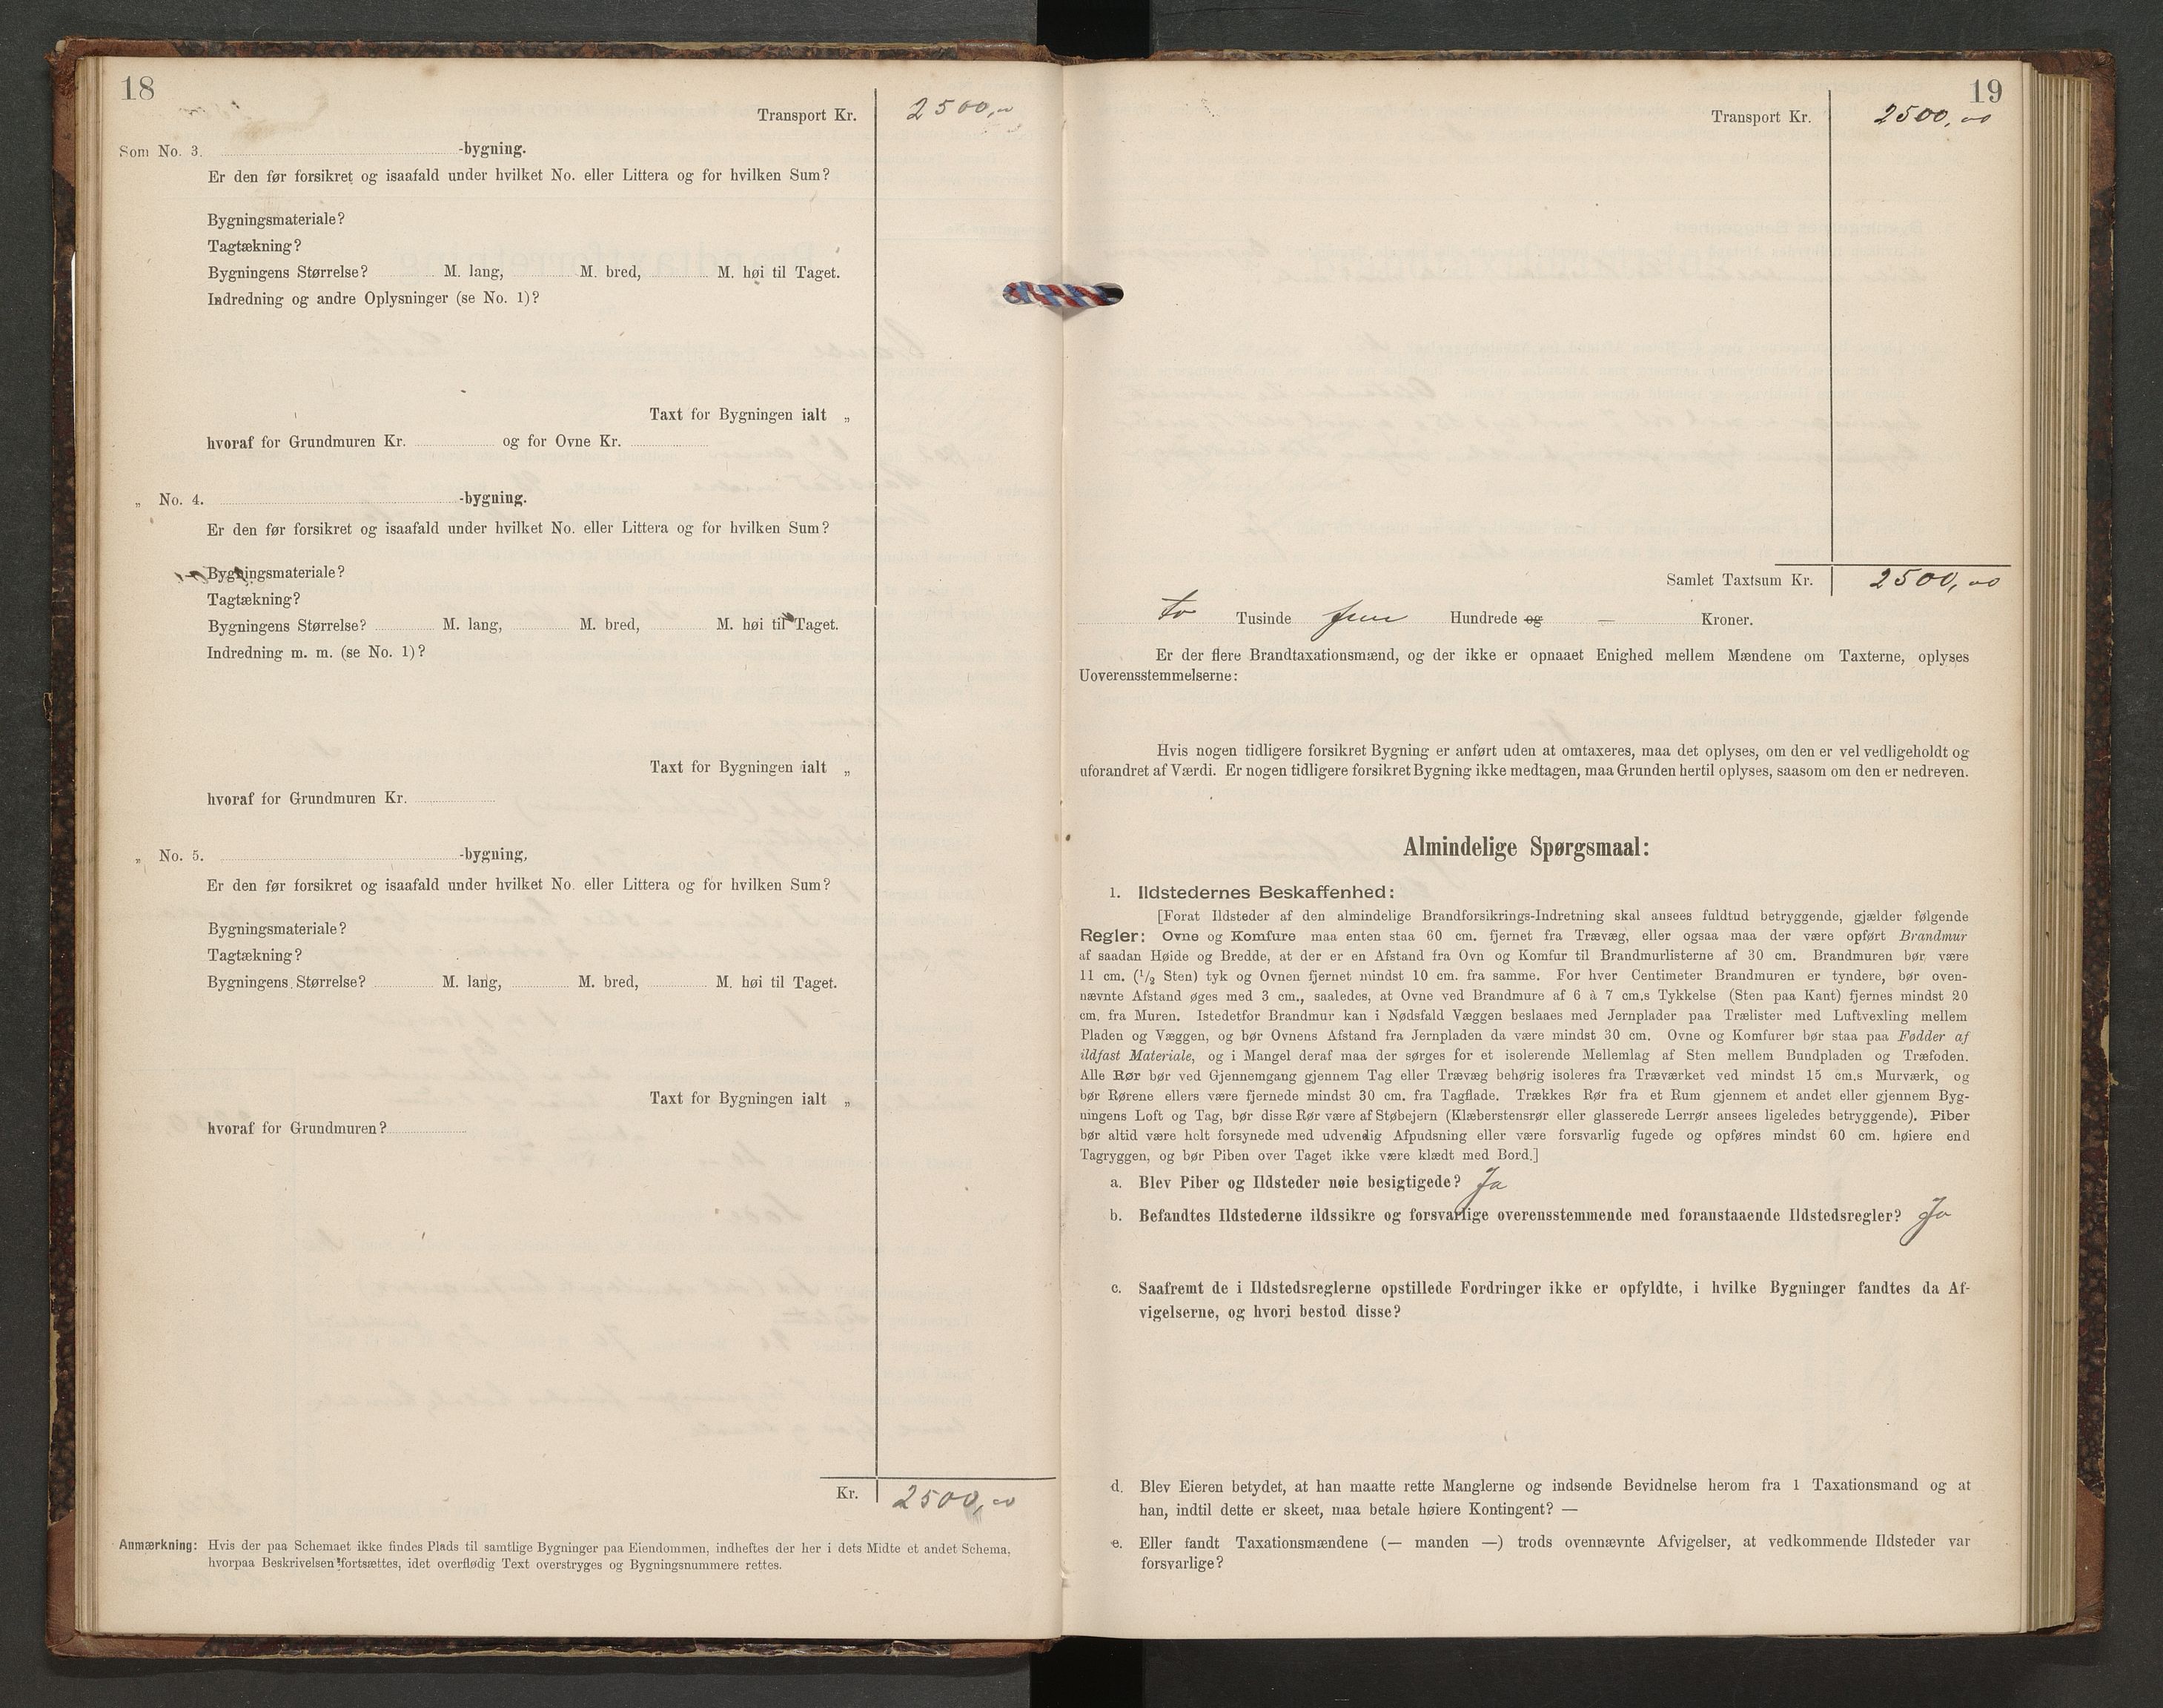 18
Transport Kr. 2500,00
Som No. 3. -bygning.
Er den før forsikret og isaafald under hvilket No. eller Littera og for hvilken Sum?
Bygningsmateriale?
Tagtækning?
Bygningens Størrelse? M. lang, M. bred, M. høi til Taget.
Indredning og andre Oplysninger (se No. 1)?
Taxt for Bygningen ialt „
hvoraf for Grundmuren Kr. og for Ovne Kr.
„ No. 4. -bygning.
Er den før forsikret og isaafald under hvilket No. eller Littera og for hvilken Sum?
Bygningsmateriale?
Tagtækning?
Bygningens Størrelse? M. lang, M. bred, M. høi til Taget.
Indredning m. m. (se No. 1)?
Taxt for Bygningen ialt „
hvoraf for Grundmuren Kr.
„ No. 5. -bygning,
Er den før forsikret og isaafald under hvilket No. eller Littera og for hvilken Sum?
Bygningsmateriale?
Tagtækning?
Bygningens Størrelse? M. lang, M. bred, M. høi til Taget.
Taxt for Bygningen ialt „
hvoraf for Grundmuren?
Kr. 2500,00
Anmærkning: Hvis der paa Schemaet ikke findes Plads til samtlige Bygninger paa Eiendommen, indheftes der her i dets Midte et andet Schema,
hvorpaa Beskrivelsen fortsættes, idet overflødig Text overstryges og Bygningsnummere rettes.
19
Transport Kr. 2500,00
Samlet Taxtsum Kr. 2500,00
to Tusinde fem Hundrede og — Kroner.
Er der flere Brandtaxationsmænd, og der ikke er opnaaet Enighed mellem Mændene om Taxterne, oplyses
Uoverensstemmelserne:
Hvis nogen tidligere forsikret Bygning er anført uden at omtaxeres, maa det oplyses, om den er vel vedligeholdt og
uforandret af Værdi. Er nogen tidligere forsikret Bygning ikke medtagen, maa Grunden hertil oplyses, saasom om den er nedreven.
Almindelige Spørgsmaal:
1. Ildstedernes Beskaffenhed:
[Forat Ildsteder af den almindelige Brandforsikrings-Indretning skal ansees fuldtud betryggende, gjælder følgende
Regler: Ovne og Komfure maa enten staa 60 cm. fjernet fra Trævæg, eller ogsaa maa der være opført Brandmur
af saadan Høide og Bredde, at der er en Afstand fra Ovn og Komfur til Brandmurlisterne af 30 cm. Brandmuren bør være
11 cm. (1/2 Sten) tyk og Ovnen fjernet mindst 10 cm. fra samme. For hver Centimeter Brandmuren er tyndere, bør oven-
nævnte Afstand øges med 3 cm., saaledes, at Ovne ved Brandmure af 6 à 7 cm.s Tykkelse (Sten paa Kant) fjernes mindst 20
cm. fra Muren. Istedetfor Brandmur kan i Nødsfald Væggen beslaaes med Jernplader paa Trælister med Luftvexling mellem
Pladen og Væggen, og bør Ovnens Afstand fra Jernpladen da være mindst 30 cm. Ovne og Komfurer bør staa paa Fødder af
ildfast Materiale, og i Mangel deraf maa der sørges for et isolerende Mellemlag af Sten mellem Bundpladen og Træfoden.
Alle Rør bør ved Gjennemgang gjennem Tag eller Trævæg behørig isoleres fra Træværket ved mindst 15 cm.s Murværk, og
bør Rørene ellers være fjernede mindst 30 cm. fra Tagflade. Trækkes Rør fra et Rum gjennem et andet eller gjennem Byg-
ningens Loft og Tag, bør disse Rør være af Støbejern (Klæberstensrør eller glasserede Lerrør ansees ligeledes betryggende). Piber
bør altid være helt forsynede med udvendig Afpudsning eller være forsvarlig fugede og opføres mindst 60 cm. høiere end
Tagryggen, og bør Piben over Taget ikke være klædt med Bord.]
a. Blev Piber og Ildsteder nøie besigtigede? Ja
b. Befandtes Ildstederne ildssikre og forsvarlige overensstemmende med foranstaaende Ildstedsregler? Ja
c. Saafremt de i Ildstedsreglerne opstillede Fordringer ikke er opfyldte, i hvilke Bygninger fandtes da Af-
vigelserne, og hvori bestod disse?
d. Blev Eieren betydet, at han maatte rette Manglerne og indsende Bevidnelse herom fra 1 Taxationsmand og at
han, indtil dette er skeet, maa betale høiere Kontingent? —
e. Eller fandt Taxationsmændene (— manden —) trods ovennævnte Afvigelser, at vedkommende Ildsteder var
forsvarlige?